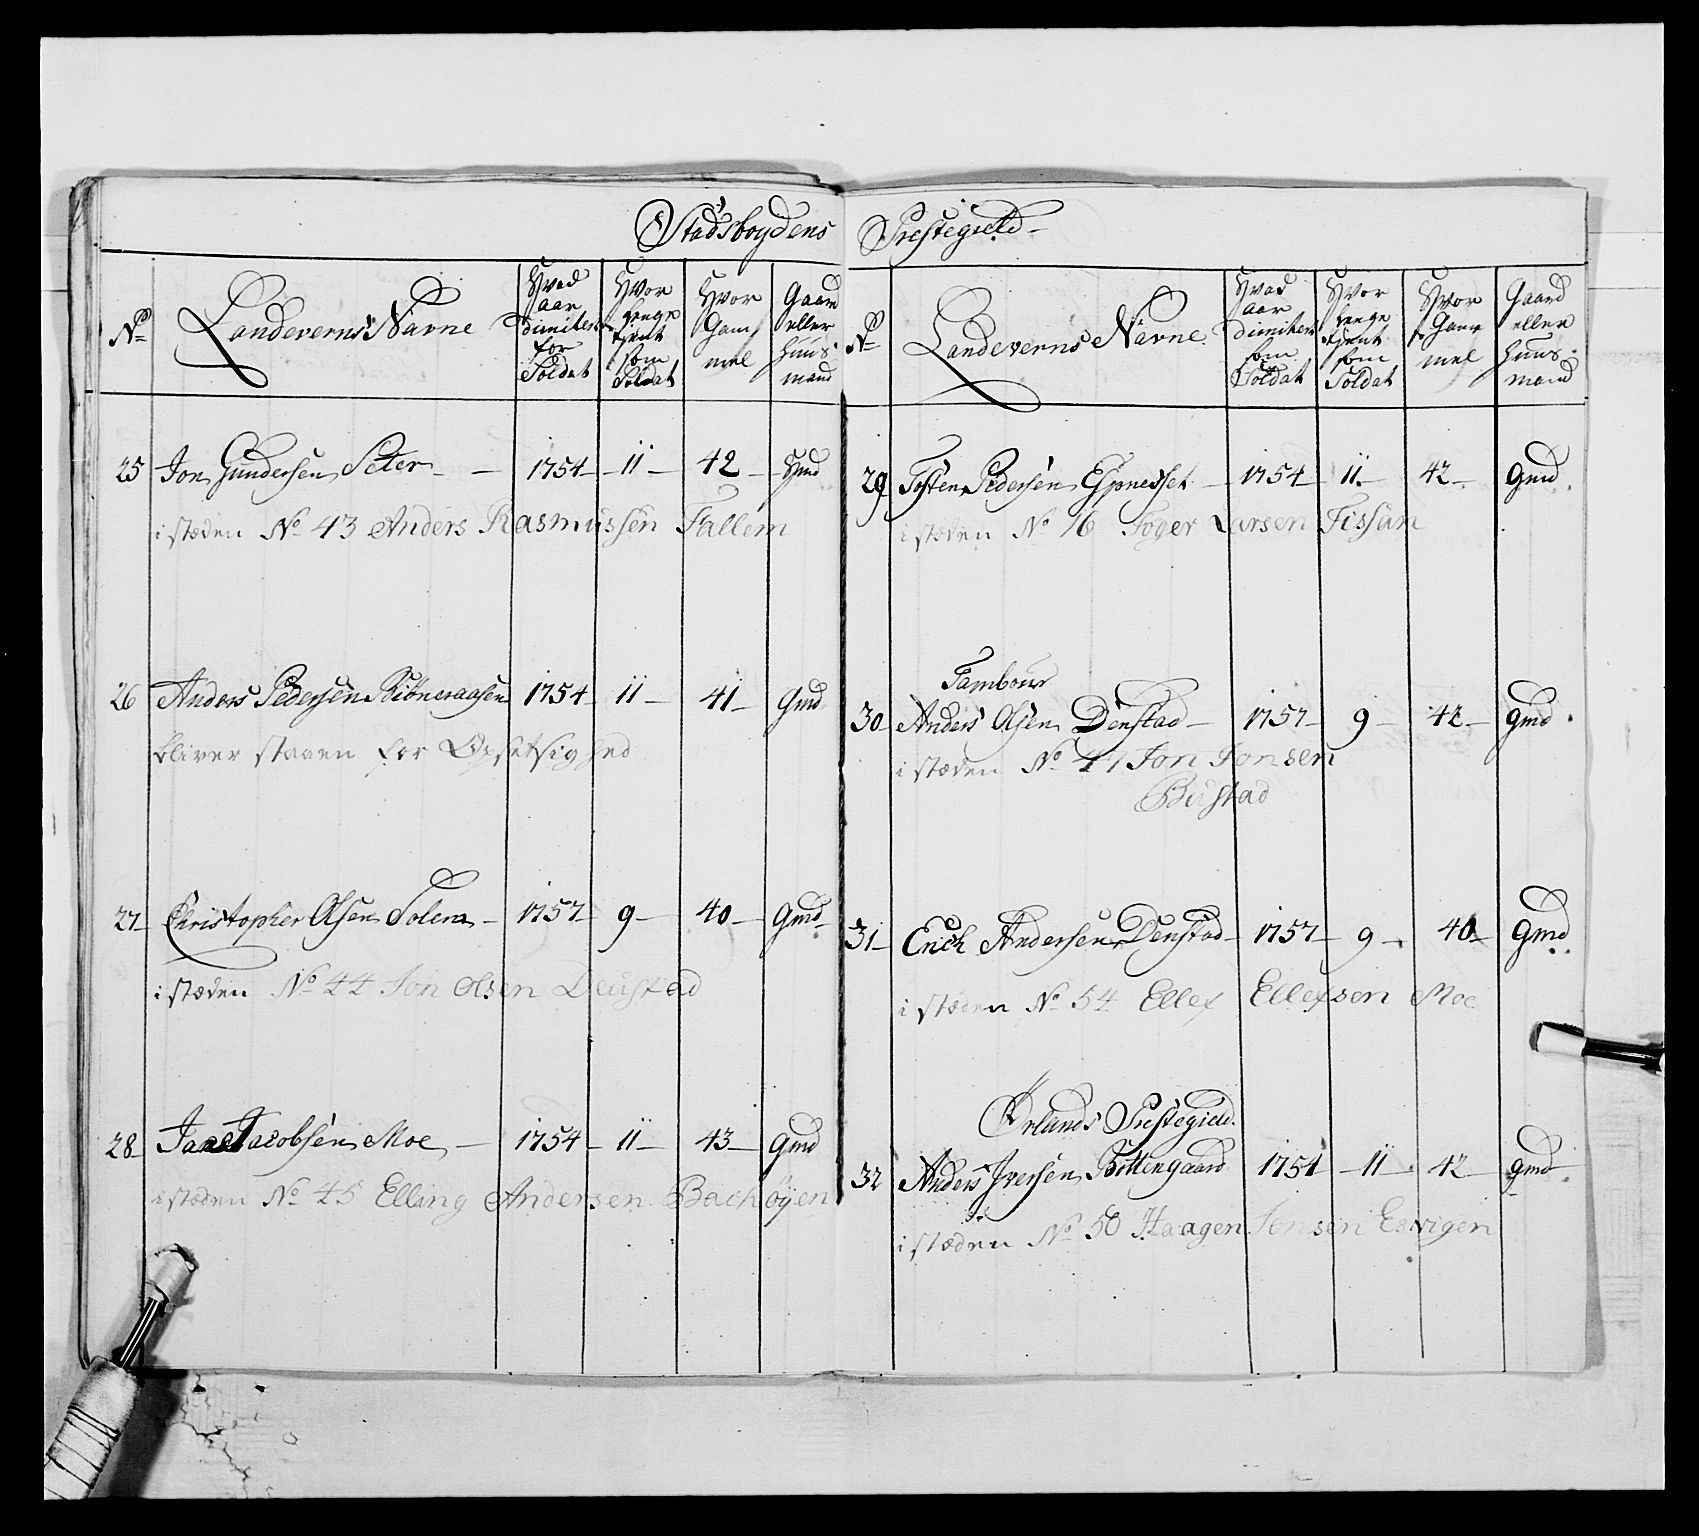 Stadsboydens Prestegield
No
Landeverns Navne
Hvad aar dimitert for Soldat
Hvor lenge tjent som Soldat
Hvor Gammel
Gaard eller Huusmand
25 Jon Gundersen Seter 1754 11 42 Hmd
i stæden No 43 Anders Rasmussen Fallem
26 Anders Pedersen Biöneraasen 1754 11 41 Gmd
bliver staaen for
27 Christopher Olsen Solem 1757 9 40 Gmd
i stæden No 44 Jon Olsen Denstad
28 Jacobsen Moe 1754 11 43 Gmd
i stæden No 45 Elling Andersen Bachöyen
No
Landeverns Navne
Hvad aar dimitert som Soldat
Hvor lenge tjent som Soldat
Hvor Gammel
Gaard eller Huusmand
29 Tosten Pedersen 1754 11 42 Gmd
i stæden No 16 Larsen
Tambour
30 Anders Olsen Denstad 1757 9 42 Gmd
i stæden No 47 Jon Jonsen
Bustad
31 Erich Andersen Denstad 1757 9 40 Gmd
i stæden No 54 Ellef Ellefsen Moe
Ørlands Prestegield
32 Anders Iversen Bottengaard 1754 11 42 gmd
i stæden No 50 Haagen Jonsen Esvigen